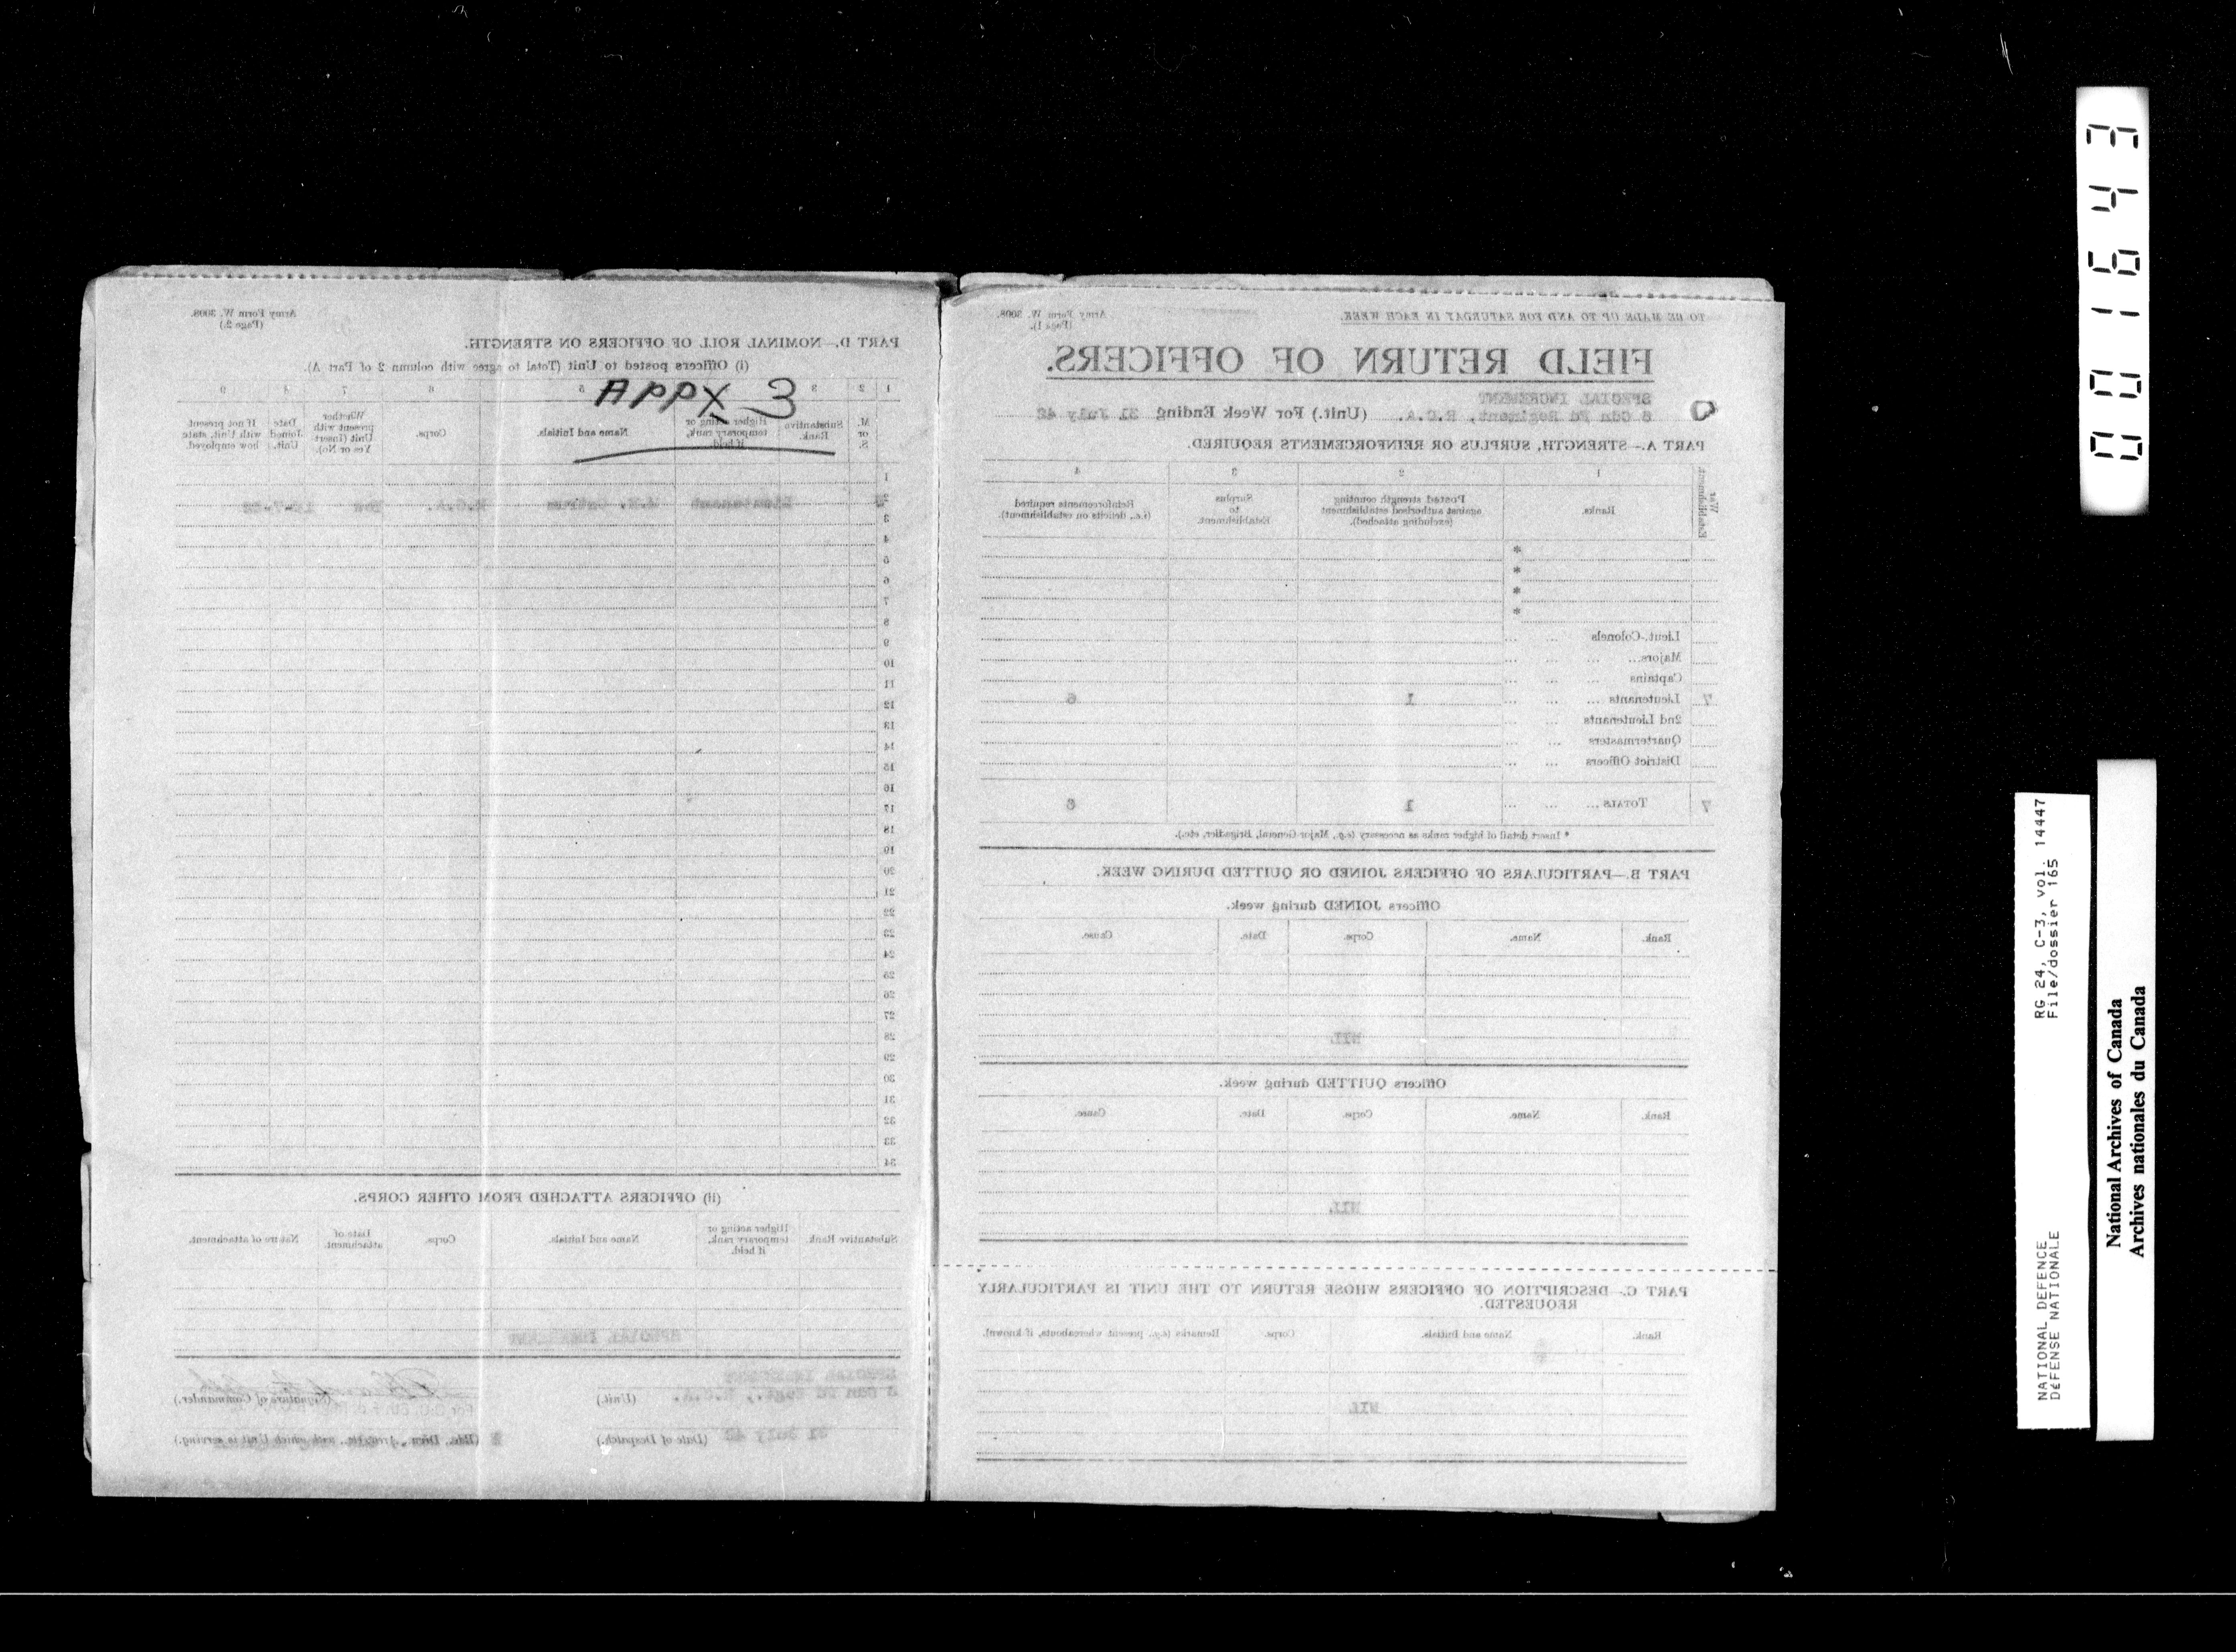 APPX 3
Army Form W. 3008.
(Page 2.)
PART D.—NOMINAL ROLL OF OFFICERS ON STRENGTH.
(i) Officers posted to Unit (Total to agree with column 2 of Part A).
1 2 3 5 6 7 8 9
M. or S.
Substantive Rank.
Higher acting or temporary rank, if held.
Name and Initials.
Corps.
Whether present with Unit (Insert Yes or No).
Date Joined Unit.
If not present with Unit, state how employed.
1
2 Lieutenant R.C.A. Yes
3
4
5
6
7
8
9
10
11
12
13
14
15
16
17
18
19
20
21
22
23
24
25
26
27
28
29
30
31
32
33
34
(ii) OFFICERS ATTACHED FROM OTHER CORPS.
Substantive Rank.
Higher acting or temporary rank, if held.
Name and Initials.
Corps.
Date of attachment.
Nature of attachment.
SPECIAL INCREMENT
SPECIAL INCREMENT
8 Cdn Fd Regt., R.C.A. (Unit.)
(Signature of Commander.)
31 July 42 (Date of Despatch.)
(Bde., Divn., Area, etc., with which Unit is serving.)
TO BE MADE UP TO AND FOR SATURDAY IN EACH WEEK.
Army Form W. 3008.
(Page 1).
FIELD RETURN OF OFFICERS.
SPECIAL INCREMENT
8 Cdn Fd Regiment, R.C.A. (Unit.) For Week Ending 31 July 42
PART A.—STRENGTH, SURPLUS OR REINFORCEMENTS REQUIRED.
War Establishment
1 2 3 4
Ranks.
Posted strength counting against authorised establishment (excluding attached).
Surplus to Establishment.
Reinforcements required (i.e., deficits on establishment).
*
*
*
*
Lieut.-Colonels ... ...
Majors... ... ... ...
Captains ... ... ...
7 Lieutenants ... ... ... 1 6
2nd Lieutenants ... ...
Quartermasters ... ...
District Officers ... ...
7 TOTALS ... ... ... 1 6
* Insert detail of higher ranks as necessary (e.g., Major General, Brigadier, etc.).
PART B.—PARTICULARS OF OFFICERS JOINED OR QUITTED DURING WEEK.
Officers JOINED during week.
Rank. Name. Corps. Date. Cause.
NIL
Officers QUITTED during week.
Rank. Name. Corps. Date. Cause.
NIL.
PART C.—DESCRIPTION OF OFFICERS WHOSE RETURN TO THE UNIT IS PARTICULARLY
REQUESTED.
Rank. Name and Initials. Corps. Remarks (e.g., present whereabouts, if known).
NIL
000164 3
RG 24, C-3, vol. 14447
File/dossier 165
NATIONAL DEFENCE
DÉFENSE NATIONALE
National Archives of Canada
Archives nationales du Canada